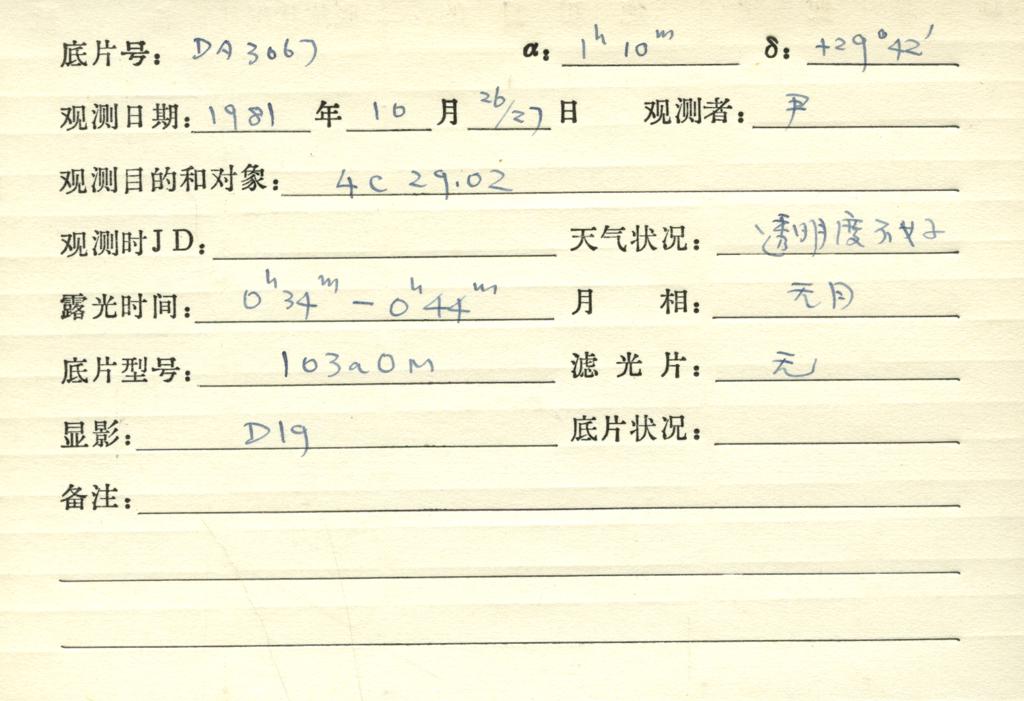 底片号: DA3067 α: 1ʰ 10ᵐ δ: +29°42′
观测日期: 1981 年 10 月 26/27 日 观测者: 尹
观测目的和对象: 4C 29.02
观测时JD: 天气状况: 透明度不好
露光时间: 0ʰ34ᵐ - 0ʰ44ᵐ 月 相: 无月
底片型号: 103aOM 滤光片: 无
显影: D19 底片状况:
备注: